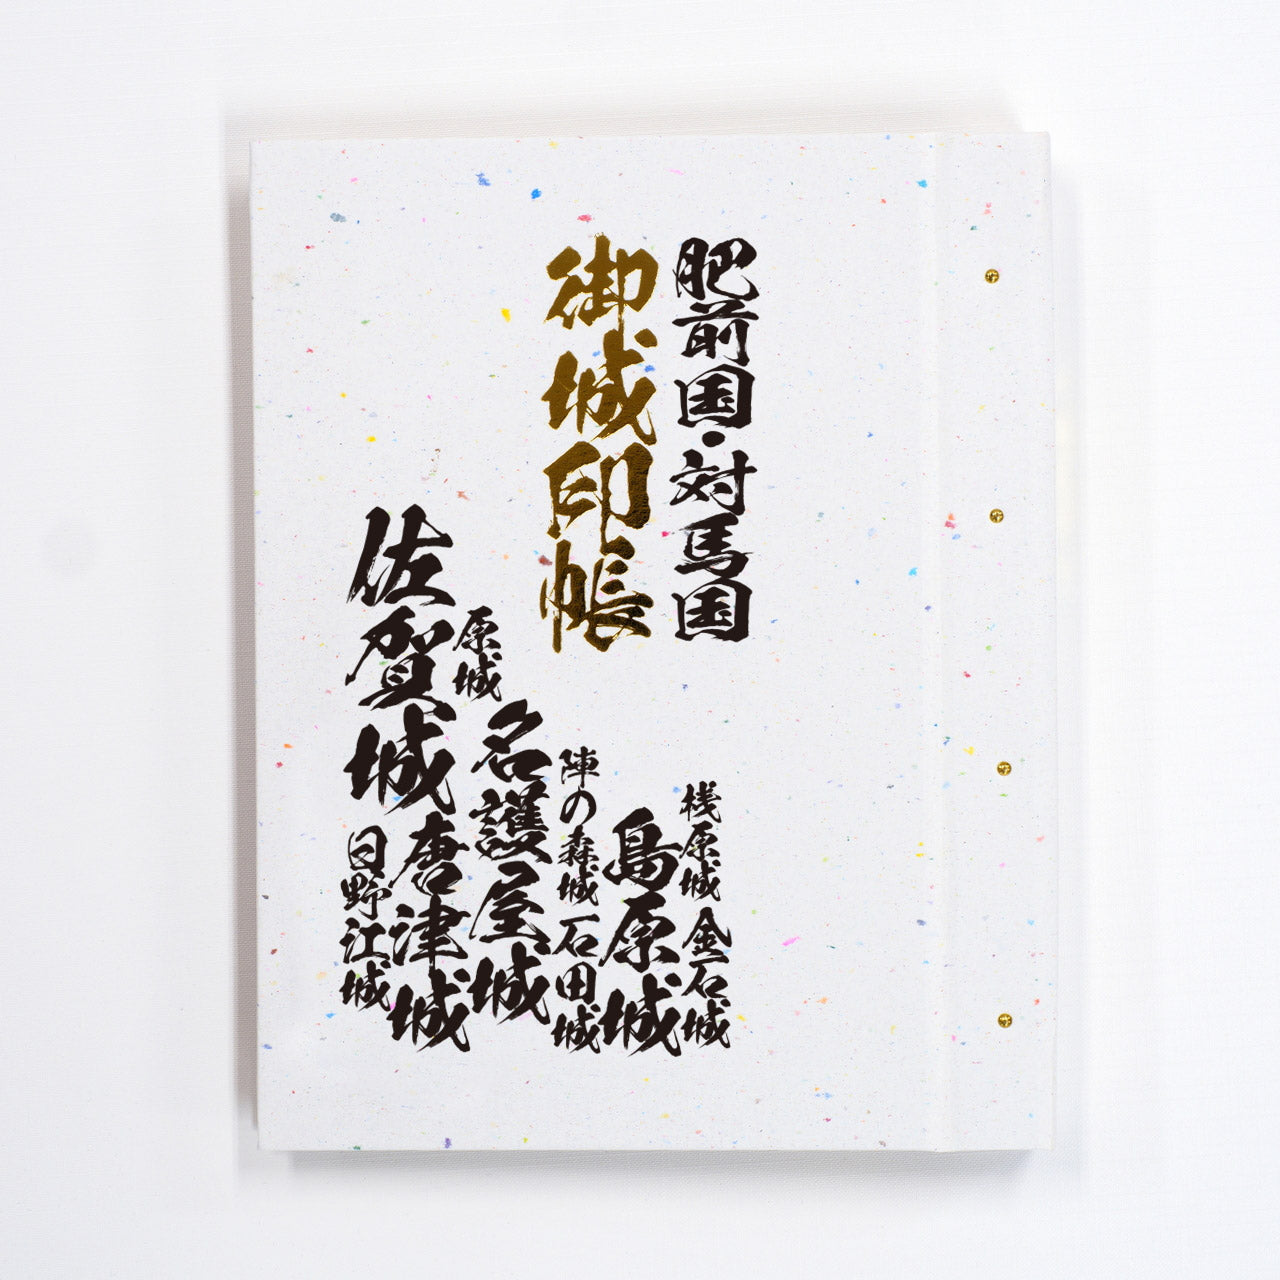 肥前国・対馬国
御城印帳
桟原城
金石城
島原城
陣の森城
石田城
名護屋城
原城
唐津城
佐賀城
日野江城